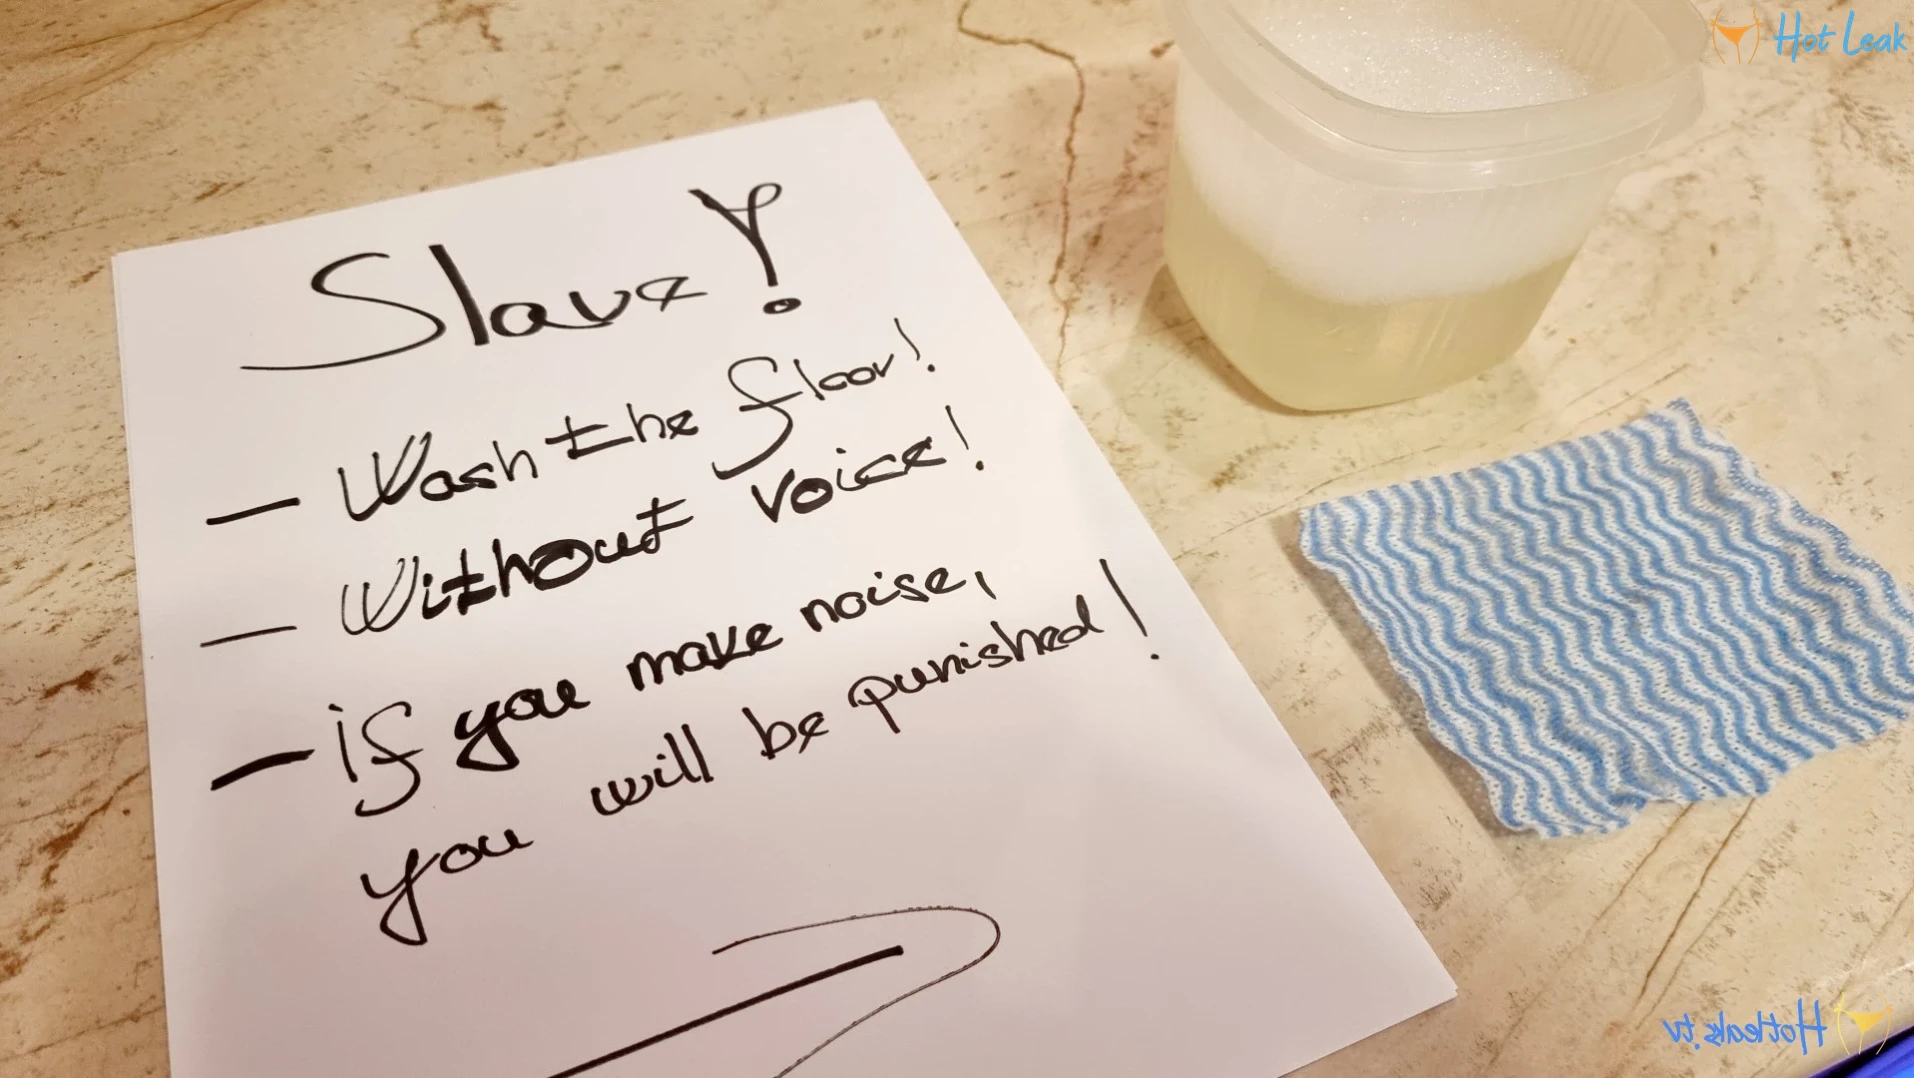 Hot Leak
Slave!
- Wash the floor!
- Without voice!
- if you make noise,
you will be punished!
Hotleaks.tv